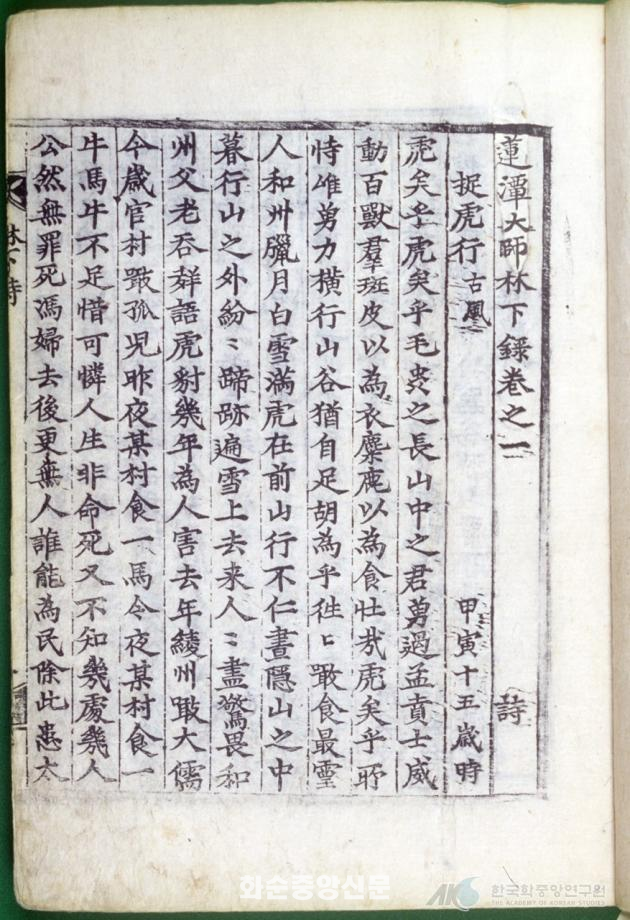 蓮潭大師林下錄卷之一 詩
捉虎行 古風 甲寅十五歲時
虎矣乎虎矣乎毛虫之長山中之君勇過孟賁士威
動百獸羣斑皮以為衣麋鹿以為食壯哉虎矣乎所
恃唯勇力橫行山谷猶自足胡為乎徃〻噉食最靈
人和州臘月白雪滿虎在前山行不仁晝隱山之中
暮行山之外紛〻蹄跡遍雪上去来人〻盡驚畏和
州父老吞聲語虎豹幾年為人害去年綾州噉大儒
今歲官村噉孤児昨夜某村食一馬今夜某村食一
牛馬牛不足惜可憐人生非命死又不知幾處幾人
公然無罪死馮婦去後更無人誰能為民除此患太
林下詩
화순중앙신문
AKS 한국학중앙연구원
THE ACADEMY OF KOREAN STUDIES